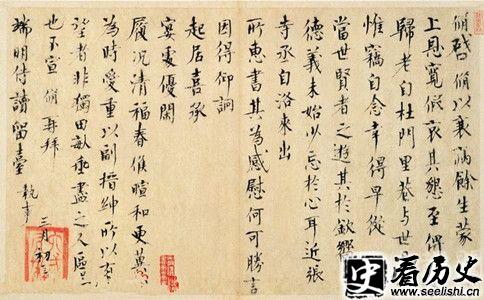 脩啓脩以衰病餘生蒙
上恩寬假哀其懇至俾
歸老自杜門里巷與世
惟竊自念幸得早從
當世賢者之遊其於欽嚮
德義未始少忘於心耳近張
寺丞自洛來出
所惠書其為感慰何可勝言
因得仰詢
起居喜承
宴處優閑
履況清福春候暄和更冀
為時愛重以副搢紳所以有
望者非獨田畝垂盡之人區々
也不宣脩再拜
端明侍讀留臺 執事
三月初
史看历史
www.seelishi.cn